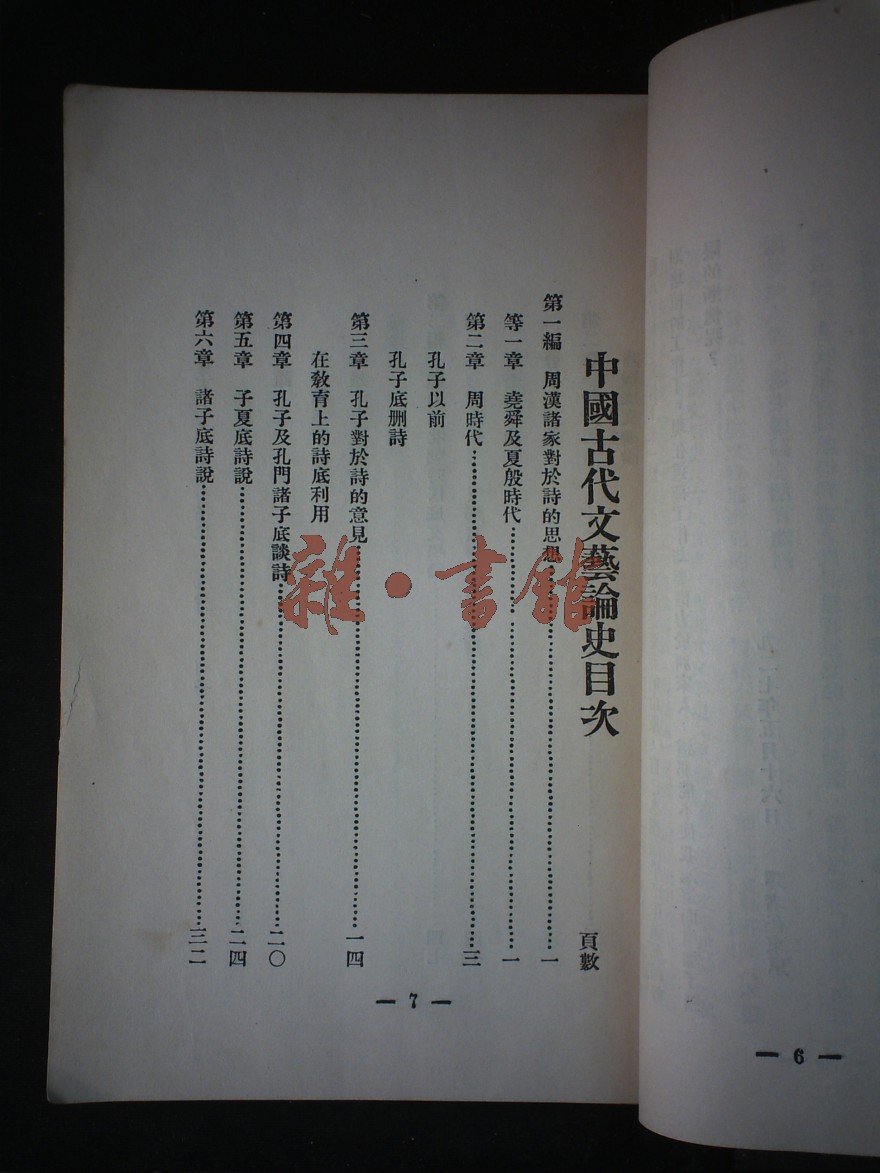 中國古代文藝論史目次
頁數
第一編 周漢諸家對於詩的思想……一
等一章 堯舜及夏殷時代……一
第二章 周時代……三
孔子以前
孔子底删詩
第三章 孔子對於詩的意見……一四
在教育上的詩底利用
第四章 孔子及孔門諸子底談詩……二〇
第五章 子夏底詩說……二四
第六章 諸子底詩說……三二
— 7 —
— 6 —
雜·書館